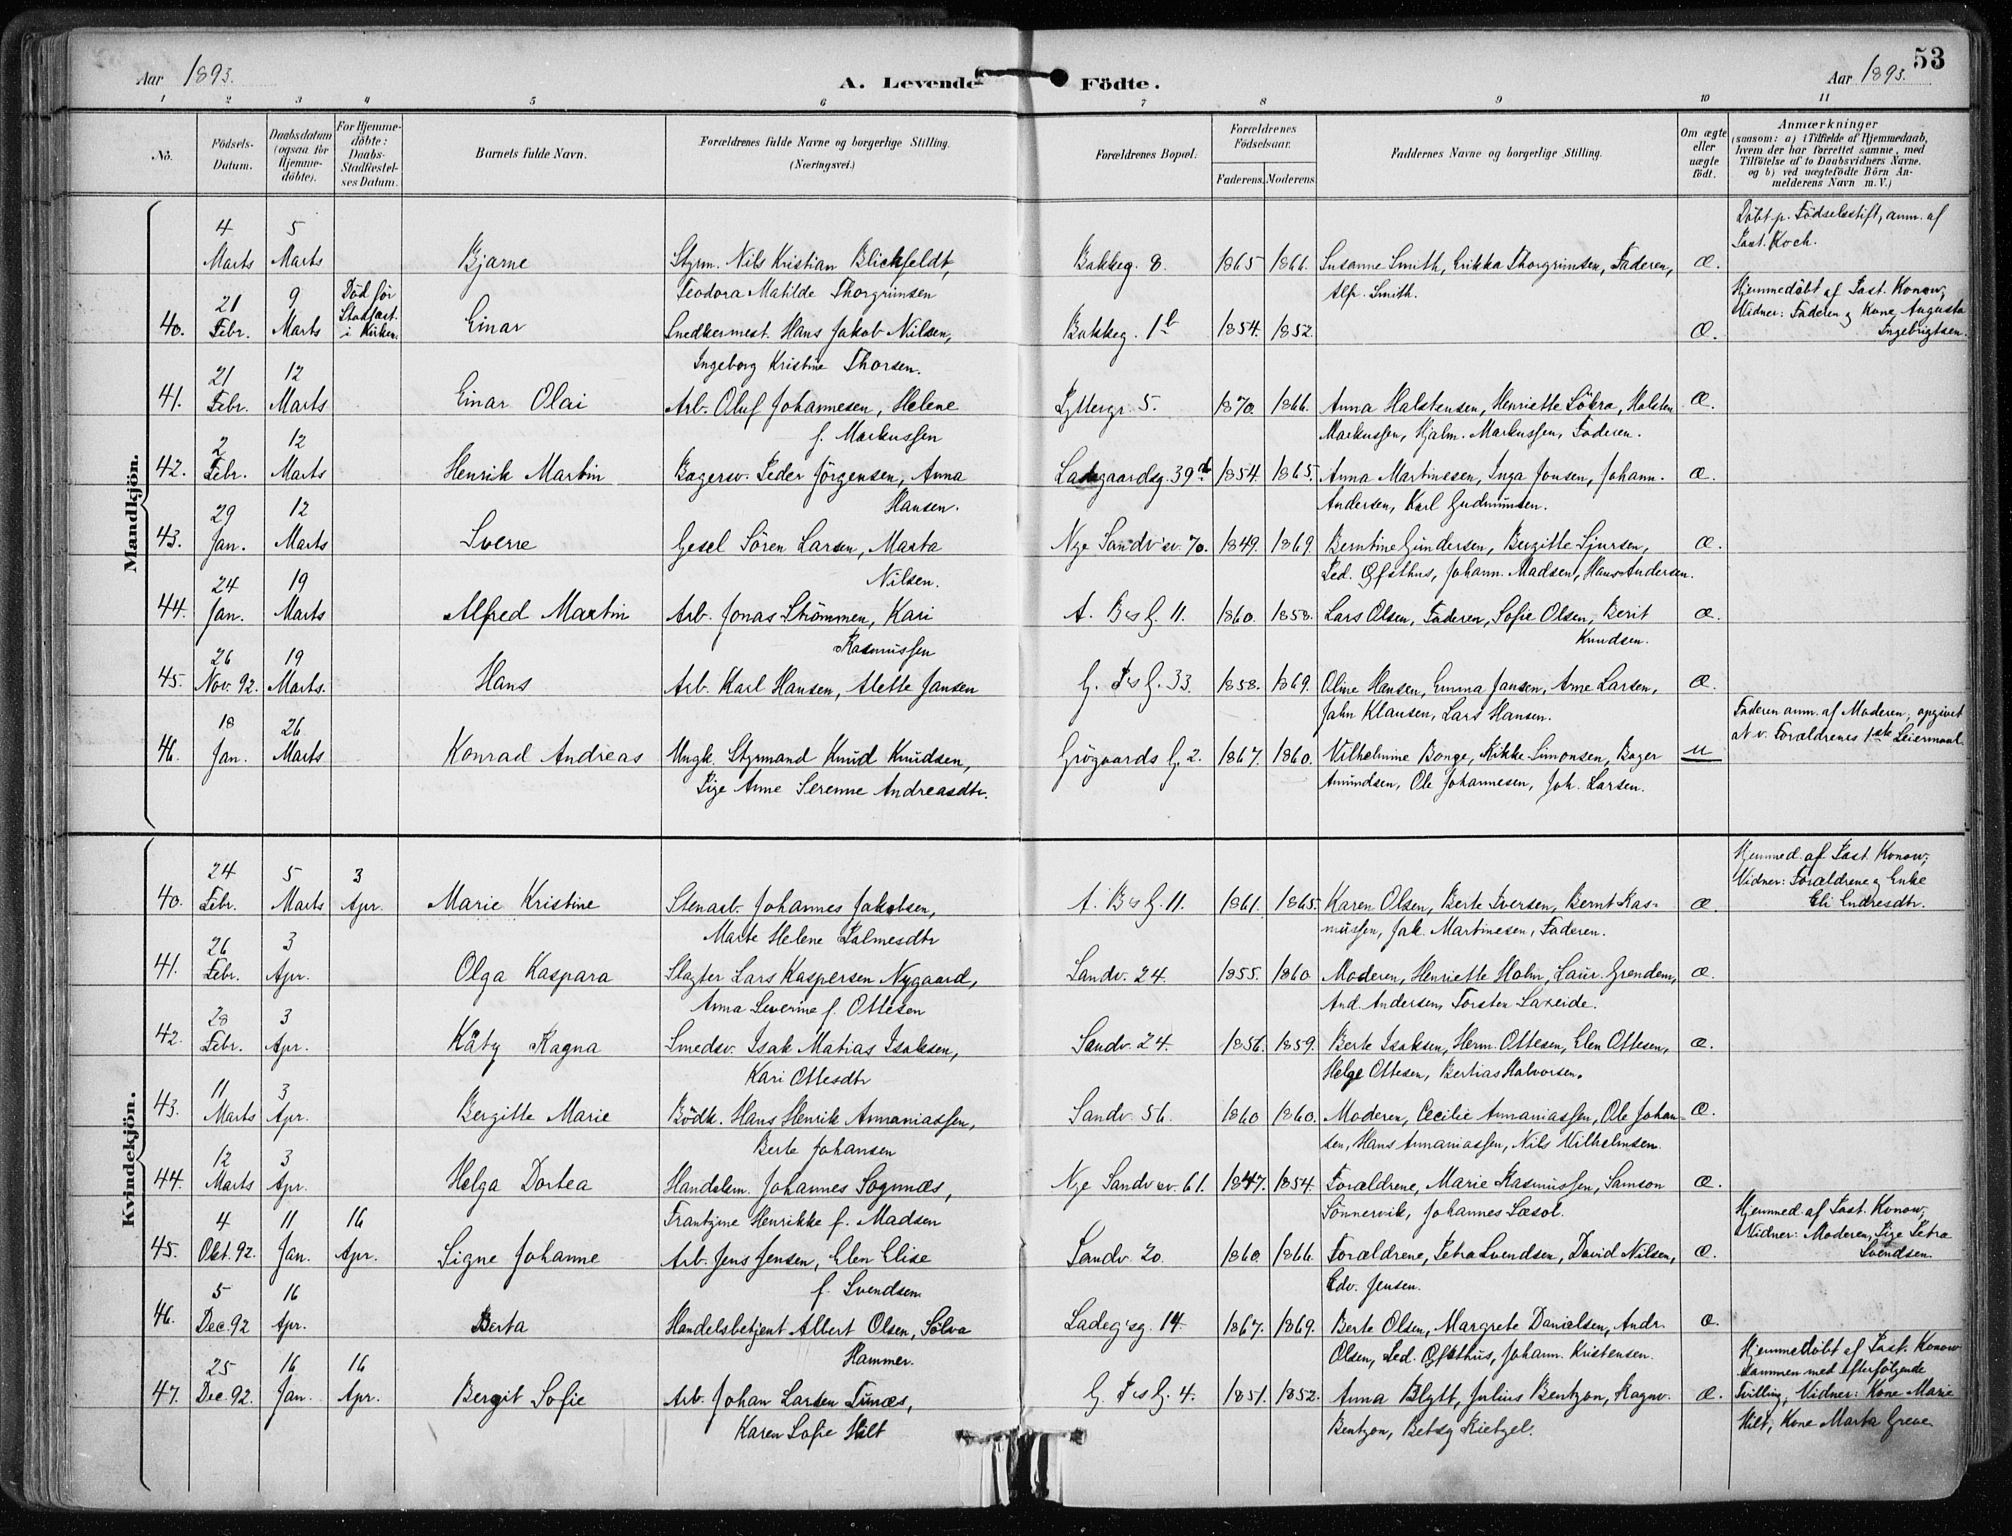 53
Aar 1893. A. Levende Födte. Aar 1893.
1 2 3 4 5 6 7 8 9 10 11
No. Födsels-Datum. Daabsdatum (ogsaa for Hjemme-döbte). For Hjemme-döbte: Daabs-Stadfæstel-ses Datum. Barnets fulde Navn. Forældrenes fulde Navne og borgerlige Stilling. (Næringsvei.) Forældrenes Bopæl. Forældrenes Födselsaar. Faderens. Moderens. Faddernes Navne og borgerlige Stilling. Om ægte eller uægte födt. Anmærkninger (saasom: a) i Tilfælde af Hjemmedaab, hvem der har forrettet samme, med Tilföielse af to Daabsvidners Navne, og b) ved uægtefödte Börn An-melderens Navn m. V.)
Mandkjön.
4 5 Döbt p. Födselsstift, anm. af
Marts Marts Bjarne Styrm. Nils Kristian Blichfeldt, Bakkeg. 8. 1865 1866. Susanne Smith, Erikka Thorgrimsen, Faderen, Æ. Past. Koch.
Teodora Matilde Thorgrimsen Alfr. Smith.
21 9 Död før Hjemmedöbt af Past. Konow,
40. Febr. Marts Stadfæst. i Kirken. Einar Snedkermest. Hans Jakob Nilsen, Bakkeg. 1b 1854. 1852. Æ. Vidner: Faderen og Kone Augusta
Ingeborg Kristine Thorsen. Ingebrigtsen.
21 12
41. Febr. Marts Einar Olai Arb. Oluf Johannesen, Helene Pyttergr. 5. 1870. 1866. Anna Halstensen, Henriette Lökra, Halsten Æ.
f. Markussen Markussen, Hjalm. Markussen, Faderen.
2 12
42. Febr. Marts Henrik Martin Bagersv. Peder Jörgensen, Anna Ladegaardsg. 39d 1854. 1865. Anna Martinssen, Inga Jonsen, Johann. Æ.
Hansen. Andersen, Karl Gudmunsen.
29 12
43. Jan. Marts Sverre Gesel Sören Larsen, Marta Nye Sandv'sv. 70. 1849. 1869. Berntine Gundersen, Bergitte Sjursen, Æ.
Nilsen. Ped. Ofsthus, Johann. Madsen, Hans Andersen.
24 19
44. Jan. Marts Alfred Martin Arb. Jonas Strömmen, Kari A. Bs G. 11. 1860. 1858. Lars Olsen, Faderen, Sofie Olsen, Berit Æ.
Rasmussen Knudsen.
26 19
45. Nov. 92. Marts. Hans Arb. Karl Hansen, Alette Jansen G. Ps G. 33. 1858. 1869. Oline Hansen, Emma Jansen, Arne Larsen, Æ.
Jahn Klausen, Lars Hansen. Faderen anm. af Moderen, opgivet
18 26 at v. Forældrenes 1ste Leiermaal.
46. Jan. Marts Konrad Andreas Ungk. Styrmand Knud Knudsen, Grögaards G. 2. 1867. 1860. Vilhelmine Bonge, Rikke Simonsen, Bager U
Pige Anne Serenne Andreasdtr. Amundsen, Ole Johannesen, Joh. Larsen.
Kvindekjön.
24 5 3 Hjemmed. af Past. Konow,
40. Febr. Marts Apr. Marie Kristine Stenarb. Johannes Jakobsen, A. Bs G. 11. 1861. 1865. Karen Olsen, Berte Iversen, Bernt Ras- Æ. Vidner: Forældrene og Enke
Marte Helene Palmesdtr mussen, Jak. Martinesen, Faderen. Eli Endresdtr.
26 3
41. Febr. Apr. Olga Kaspara Slagter Lars Kaspersen Nygaard, Sandv. 24. 1855. 1860 Moderen, Henriette Holm, Laur. Grendem, Æ.
Anna Severine f. Ottesen And. Andersen, Torsten Laxeide.
28 3
42. Febr. Apr. Käty Ragna Smedsv. Isak Matias Isaksen, Sandv. 24. 1856. 1859. Berte Isaksen, Herm. Ottesen, Elen Ottesen, Æ.
Kari Ottesdtr Helge Ottesen, Bertias Halvorsen.
11 3
43. Marts Apr. Bergitte Marie Bödk. Hans Henrik Annaniassen, Sandv. 56. 1860 1860. Moderen, Cecilie Annaniassen, Ole Johan- Æ.
Berte Johansen sen, Hans Annaniassen, Nils Vilhelmsen.
12 3
44. Marts Apr. Helga Dortea Handelsm. Johannes Sognnæs, Nye Sandv'sv. 61. 1847. 1854. Forældrene, Marie Rasmussen, Samson Æ.
Frantzine Henrikke f. Madsen Sönnervik, Johannes Læsol. Hjemmed. af Past. Konow,
4 11 16 Vidner: Moderen, Pige Petra
45. Okt. 92. Jan. Apr. Signe Johanne Arb. Jens Jensen, Elen Elise Sandv. 20. 1860. 1866. Forældrene, Petra Svendsen, David Nilsen, Æ. Svendsen.
f. Svendsen Edv. Jensen.
5 16
46. Dec. 92 Apr. Berta Handelsbetjent Albert Olsen, Sölva Ladeg'sg. 14. 1867. 1869. Berte Olsen, Margrete Danielsen, Andr. Æ.
Hammer. Olsen, Ped. Ofsthus, Johann. Kristensen. Hjemmedöbt af Past. Konow
25 16 16 sammen med efterfölgende
47. Dec. 92. Jan. Apr. Bergit Sofie Arb. Johan Larsen Tunæs, G Ps G. 4. 1851. 1852. Anna Blytt, Julius Bentzon, Ragnv. Æ. Tvilling, Vidner: Kone Marie
Karen Sofie Hilt Bentzon, Betsy Rietzel. Hilt, Kone Marta Greve